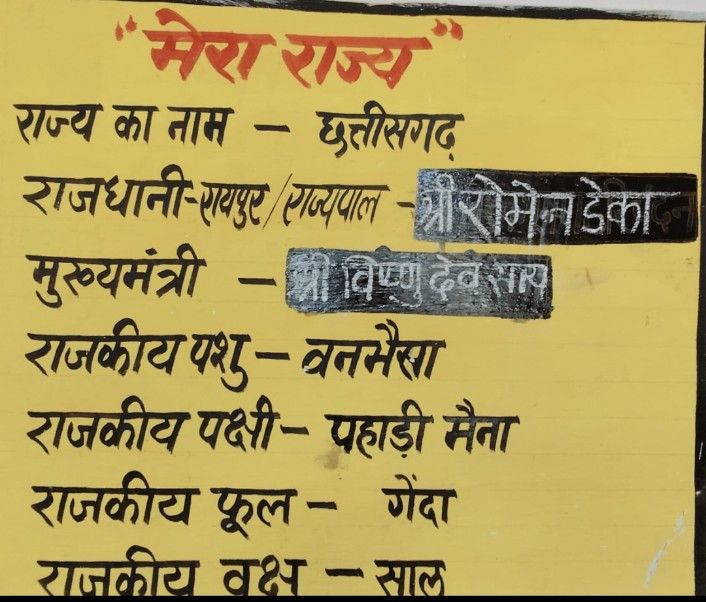 "मेरा राज्य"
राज्य का नाम – छत्तीसगढ़
राजधानी-रायपुर/राज्यपाल - श्री रोमेन डेका
मुख्यमंत्री – श्री विष्णु देव साय
राजकीय पशु – वनभैसा
राजकीय पक्षी – पहाड़ी मैना
राजकीय फूल – गेंदा
राजकीय वृक्ष – साल